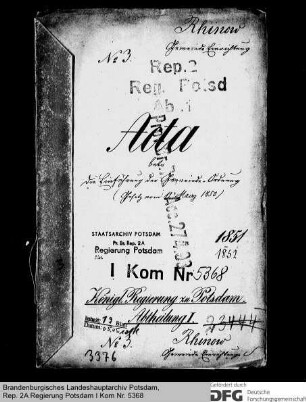 Rhinow
Gemeinde Einrichtung
No 3.
Rep. 2
Reg. Potsd
Abt. I
Acta
betr.
die Einführung der Gemeinde-Ordnung
(Gesetz vom 1850)
1851
1852
STAATSARCHIV POTSDAM
Pr. Br. Rep. 2A
Regierung Potsdam
I Kom Nr 5368
Königl. Regierung zu Potsdam
Abtheilung I.
No 3.
3376
Rhinow
Gemeinde Einrichtung
Brandenburgisches Landeshauptarchiv Potsdam,
Rep. 2A Regierung Potsdam I Kom Nr. 5368
Gefördert durch
DFG Deutsche
Forschungsgemeinschaft